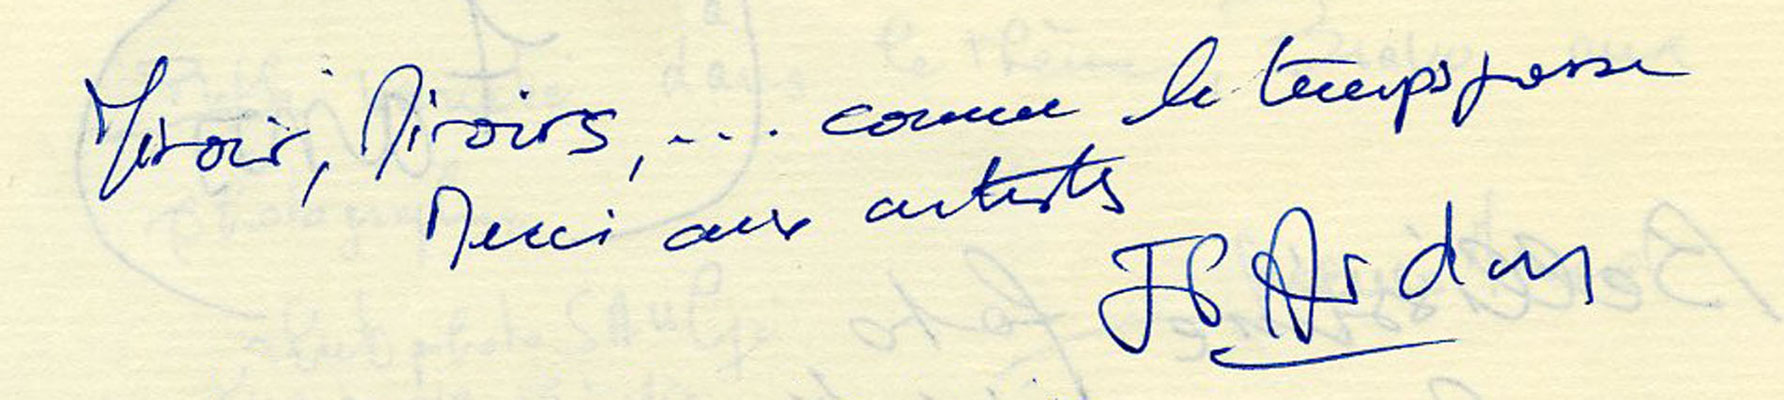 Miroir, Miroirs, ... comme le temps passe
Merci aux artistes
JP Ardon